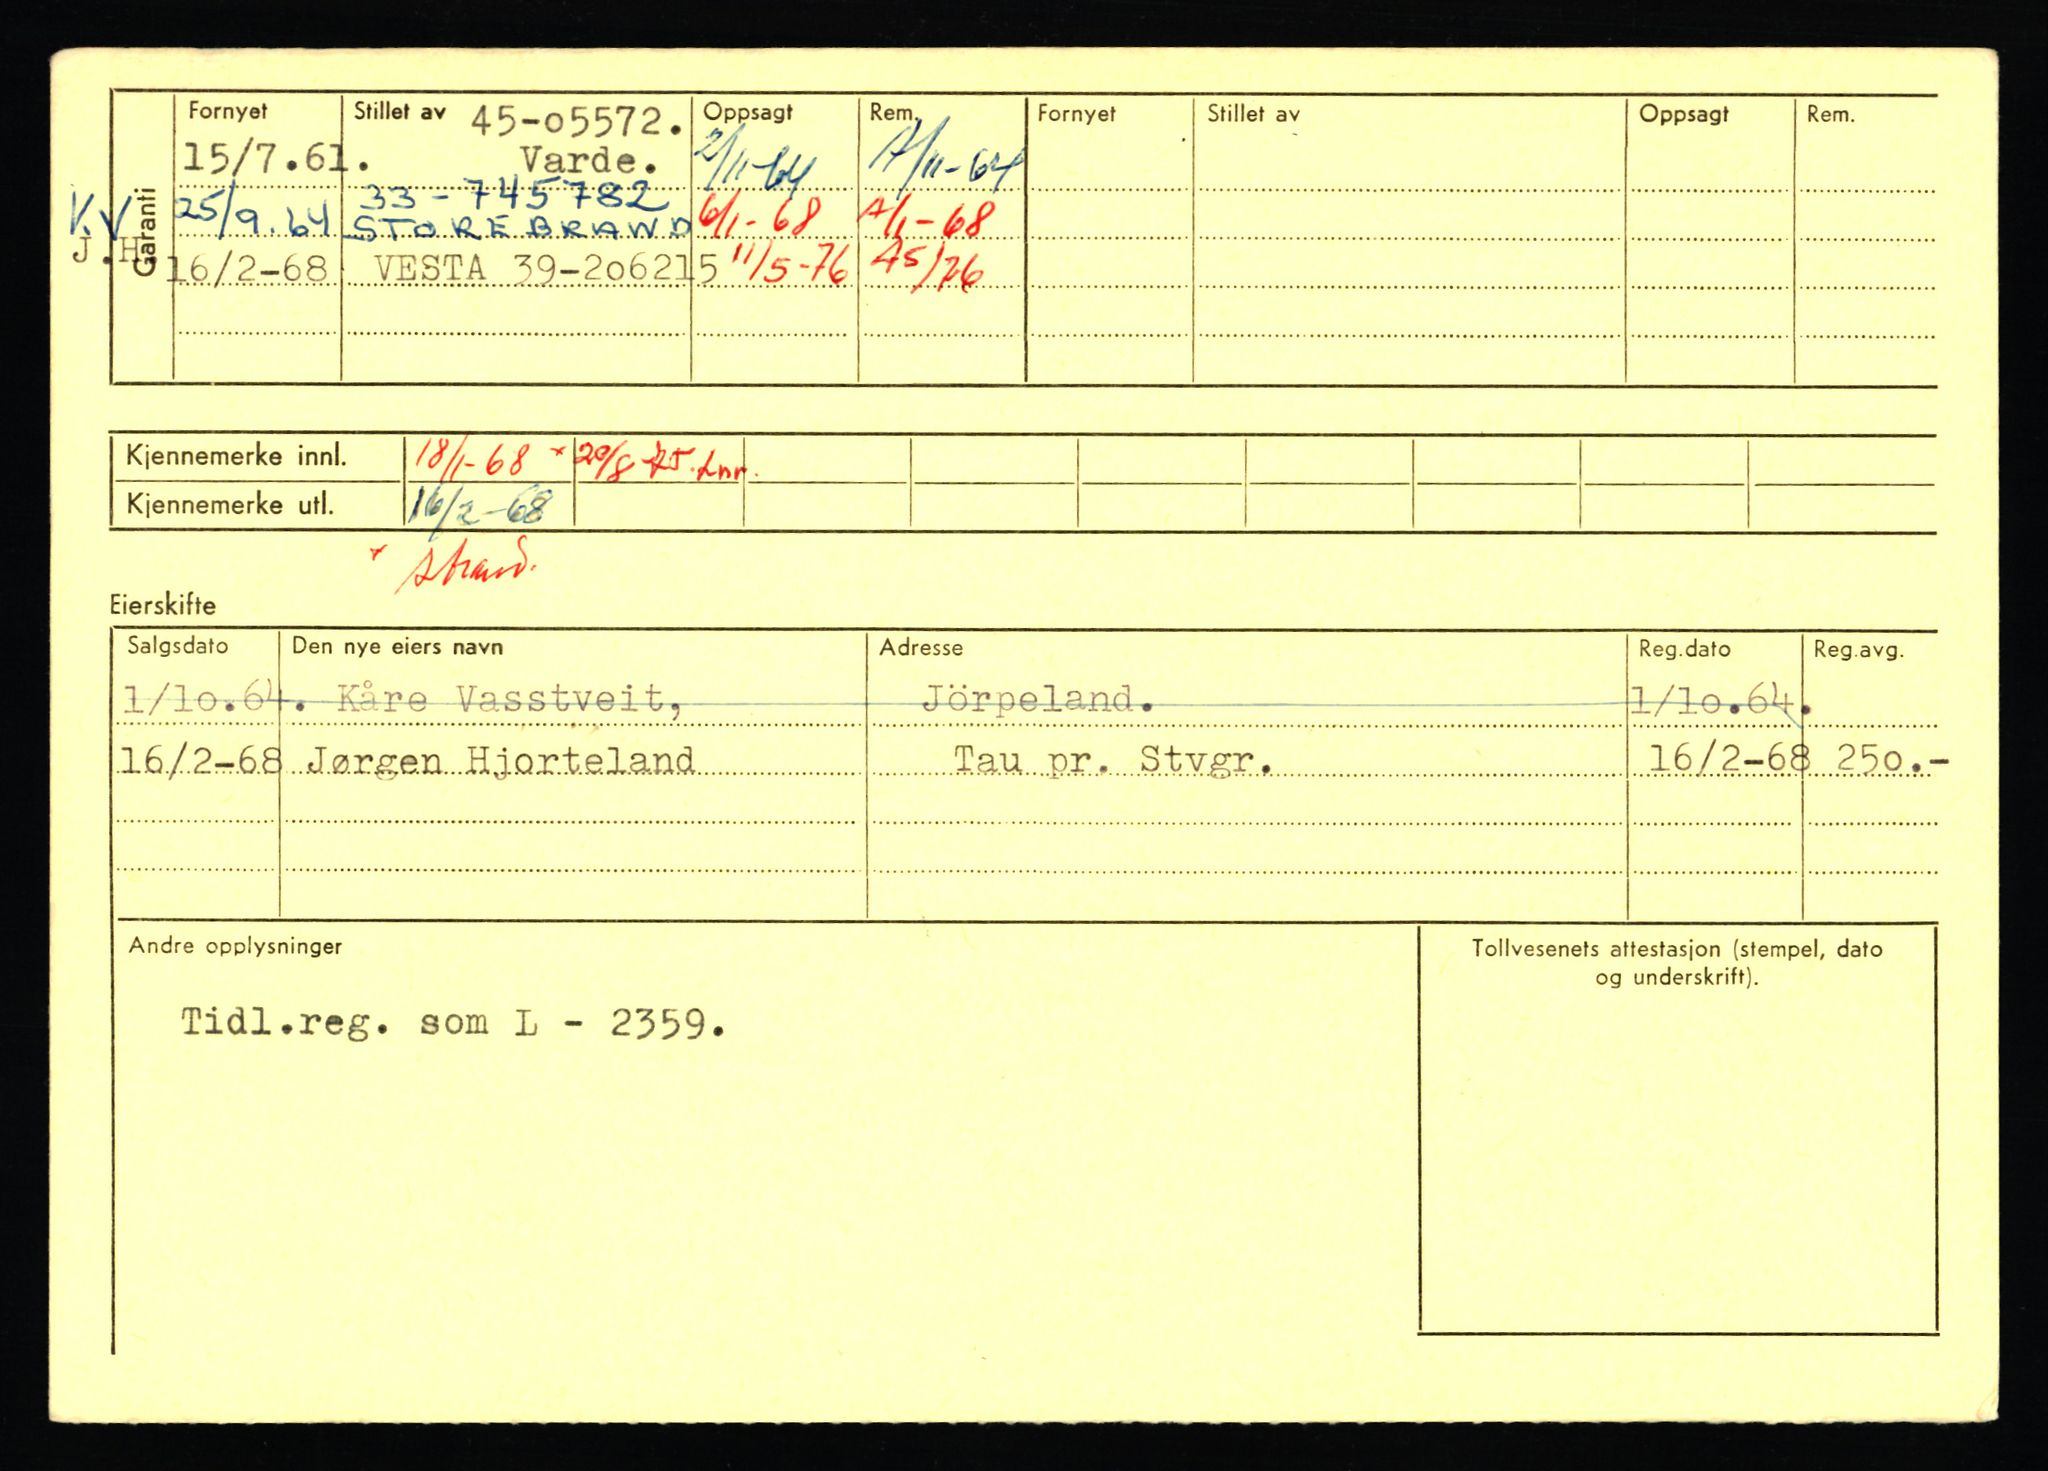 Fornyet Stillet av 45-o5572. Oppsagt Rem. Fornyet Stillet av Oppsagt Rem.
15/7.61. Varde. 2/11-64 A/11-64
33-745782
K.V 25/9.64 STOREBRAND 6/1-68 A/1-68
J.H. 16/2-68 VESTA 39-2o6215 11/5-76 A5/76
Garanti
Kjennemerke innl. 18/1-68 * 20/8-75. Lnr.
Kjennemerke utl. 16/2-68
* strand.
Eierskifte
Salgsdato Den nye eiers navn Adresse Reg.dato Reg.avg.
1/1o.64. Kåre Vasstveit, Jörpeland. 1/1o.64.
16/2-68 Jørgen Hjorteland Tau pr. Stvgr. 16/2-68 25o.-
Andre opplysninger
Tollvesenets attestasjon (stempel, dato
og underskrift).
Tidl.reg. som L - 2359.